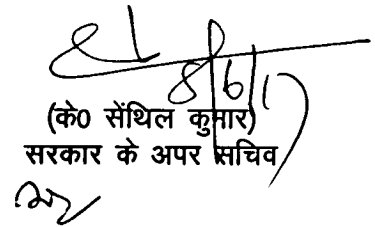 8/6/17
(के0 सेंथिल कुमार)
सरकार के अपर सचिव